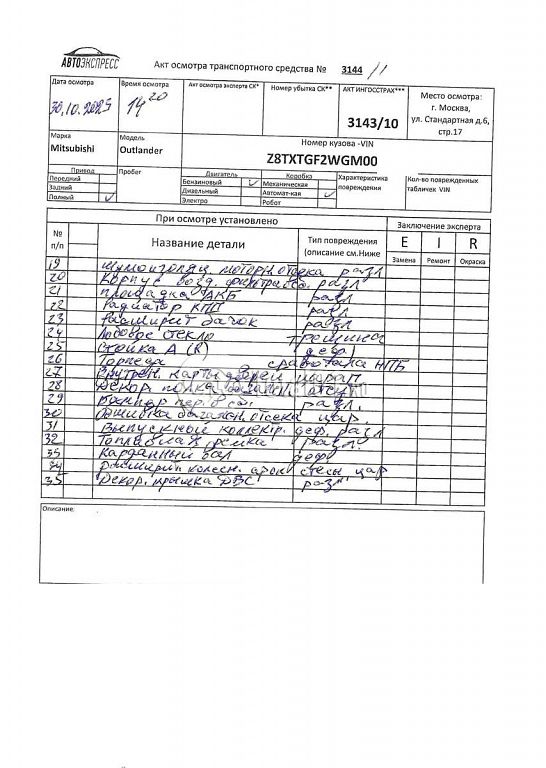 АВТОЭКСПРЕСС
Акт осмотра транспортного средства № 3144 /1
Дата осмотра
30.10.2025
Время осмотра
14 20
Акт осмотра эксперта СК*
Номер убытка СК**
АКТ ИНГОССТРАХ***
3143/10
Место осмотра:
г. Москва,
ул. Стандартная д.6,
стр.17
Марка
Mitsubishi
Модель
Outlander
Номер кузова -VIN
Z8TXTGF2WGM00
Привод
Передний
Задний
Полный ✓
Пробег
Двигатель
Бензиновый ✓
Дизельный
Электро
Коробка
Механическая
Автомат-кая ✓
Робот
Характеристика повреждения
Кол-во поврежденных
табличек VIN
При осмотре установлено
Заключение эксперта
№ п/п
Название детали
Тип повреждения
(описание см.Ниже
E I R
Замена Ремонт Окраска
19 Шумоизоляц. моторн. отсека разл
20 Корпус возд. фильтра разл
21 площадка АКБ разл
22 Радиатор КПП разл
23 Расширит бачок разл
24 Лобовое стекло трещина
25 Стойка А (R) деф
26 Торпеда сработала НПБ
27 Внутрен. карты дверей царап
28 Декор полка
29 разл.
30 Обшивка багажн. отсека цар.
31 Выпускный коллектр. деф. разл
32 разл.
33 Карданный вал деф
34 Расширит колесн. арок стесы цар
35 Декор. крышка ДВС раз
Описание: